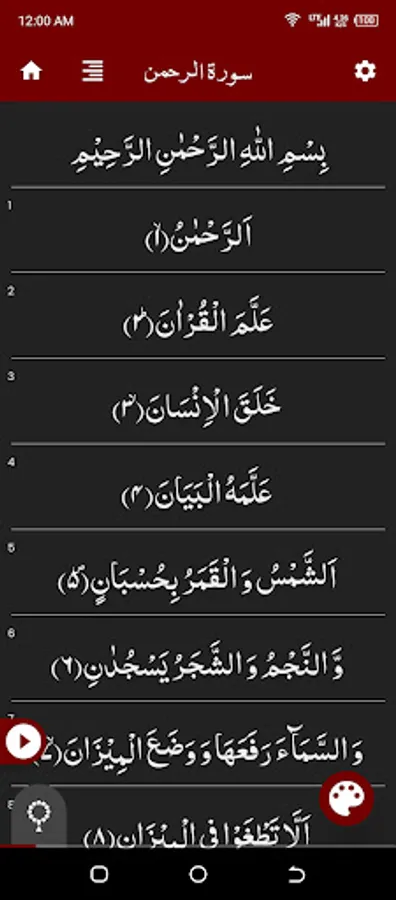 12:00 AM
سورة الرحمن
بِسْمِ اللّٰهِ الرَّحْمٰنِ الرَّحِيْمِ
1
اَلرَّحْمٰنُ(۱)
2
عَلَّمَ الْقُرْاٰنَ(۲)
3
خَلَقَ الْاِنْسَانَ(۳)
4
عَلَّمَهُ الْبَيَانَ(۴)
5
اَلشَّمْسُ وَ الْقَمَرُ بِحُسْبَانٍ(۵)
6
وَّ النَّجْمُ وَ الشَّجَرُ يَسْجُدٰنِ(۶)
7
وَ السَّمَآءَ رَفَعَهَا وَ وَضَعَ الْمِيْزَانَ(۷)
8
اَلَّا تَطْغَوْا فِی الْمِيْزَانِ(۸)